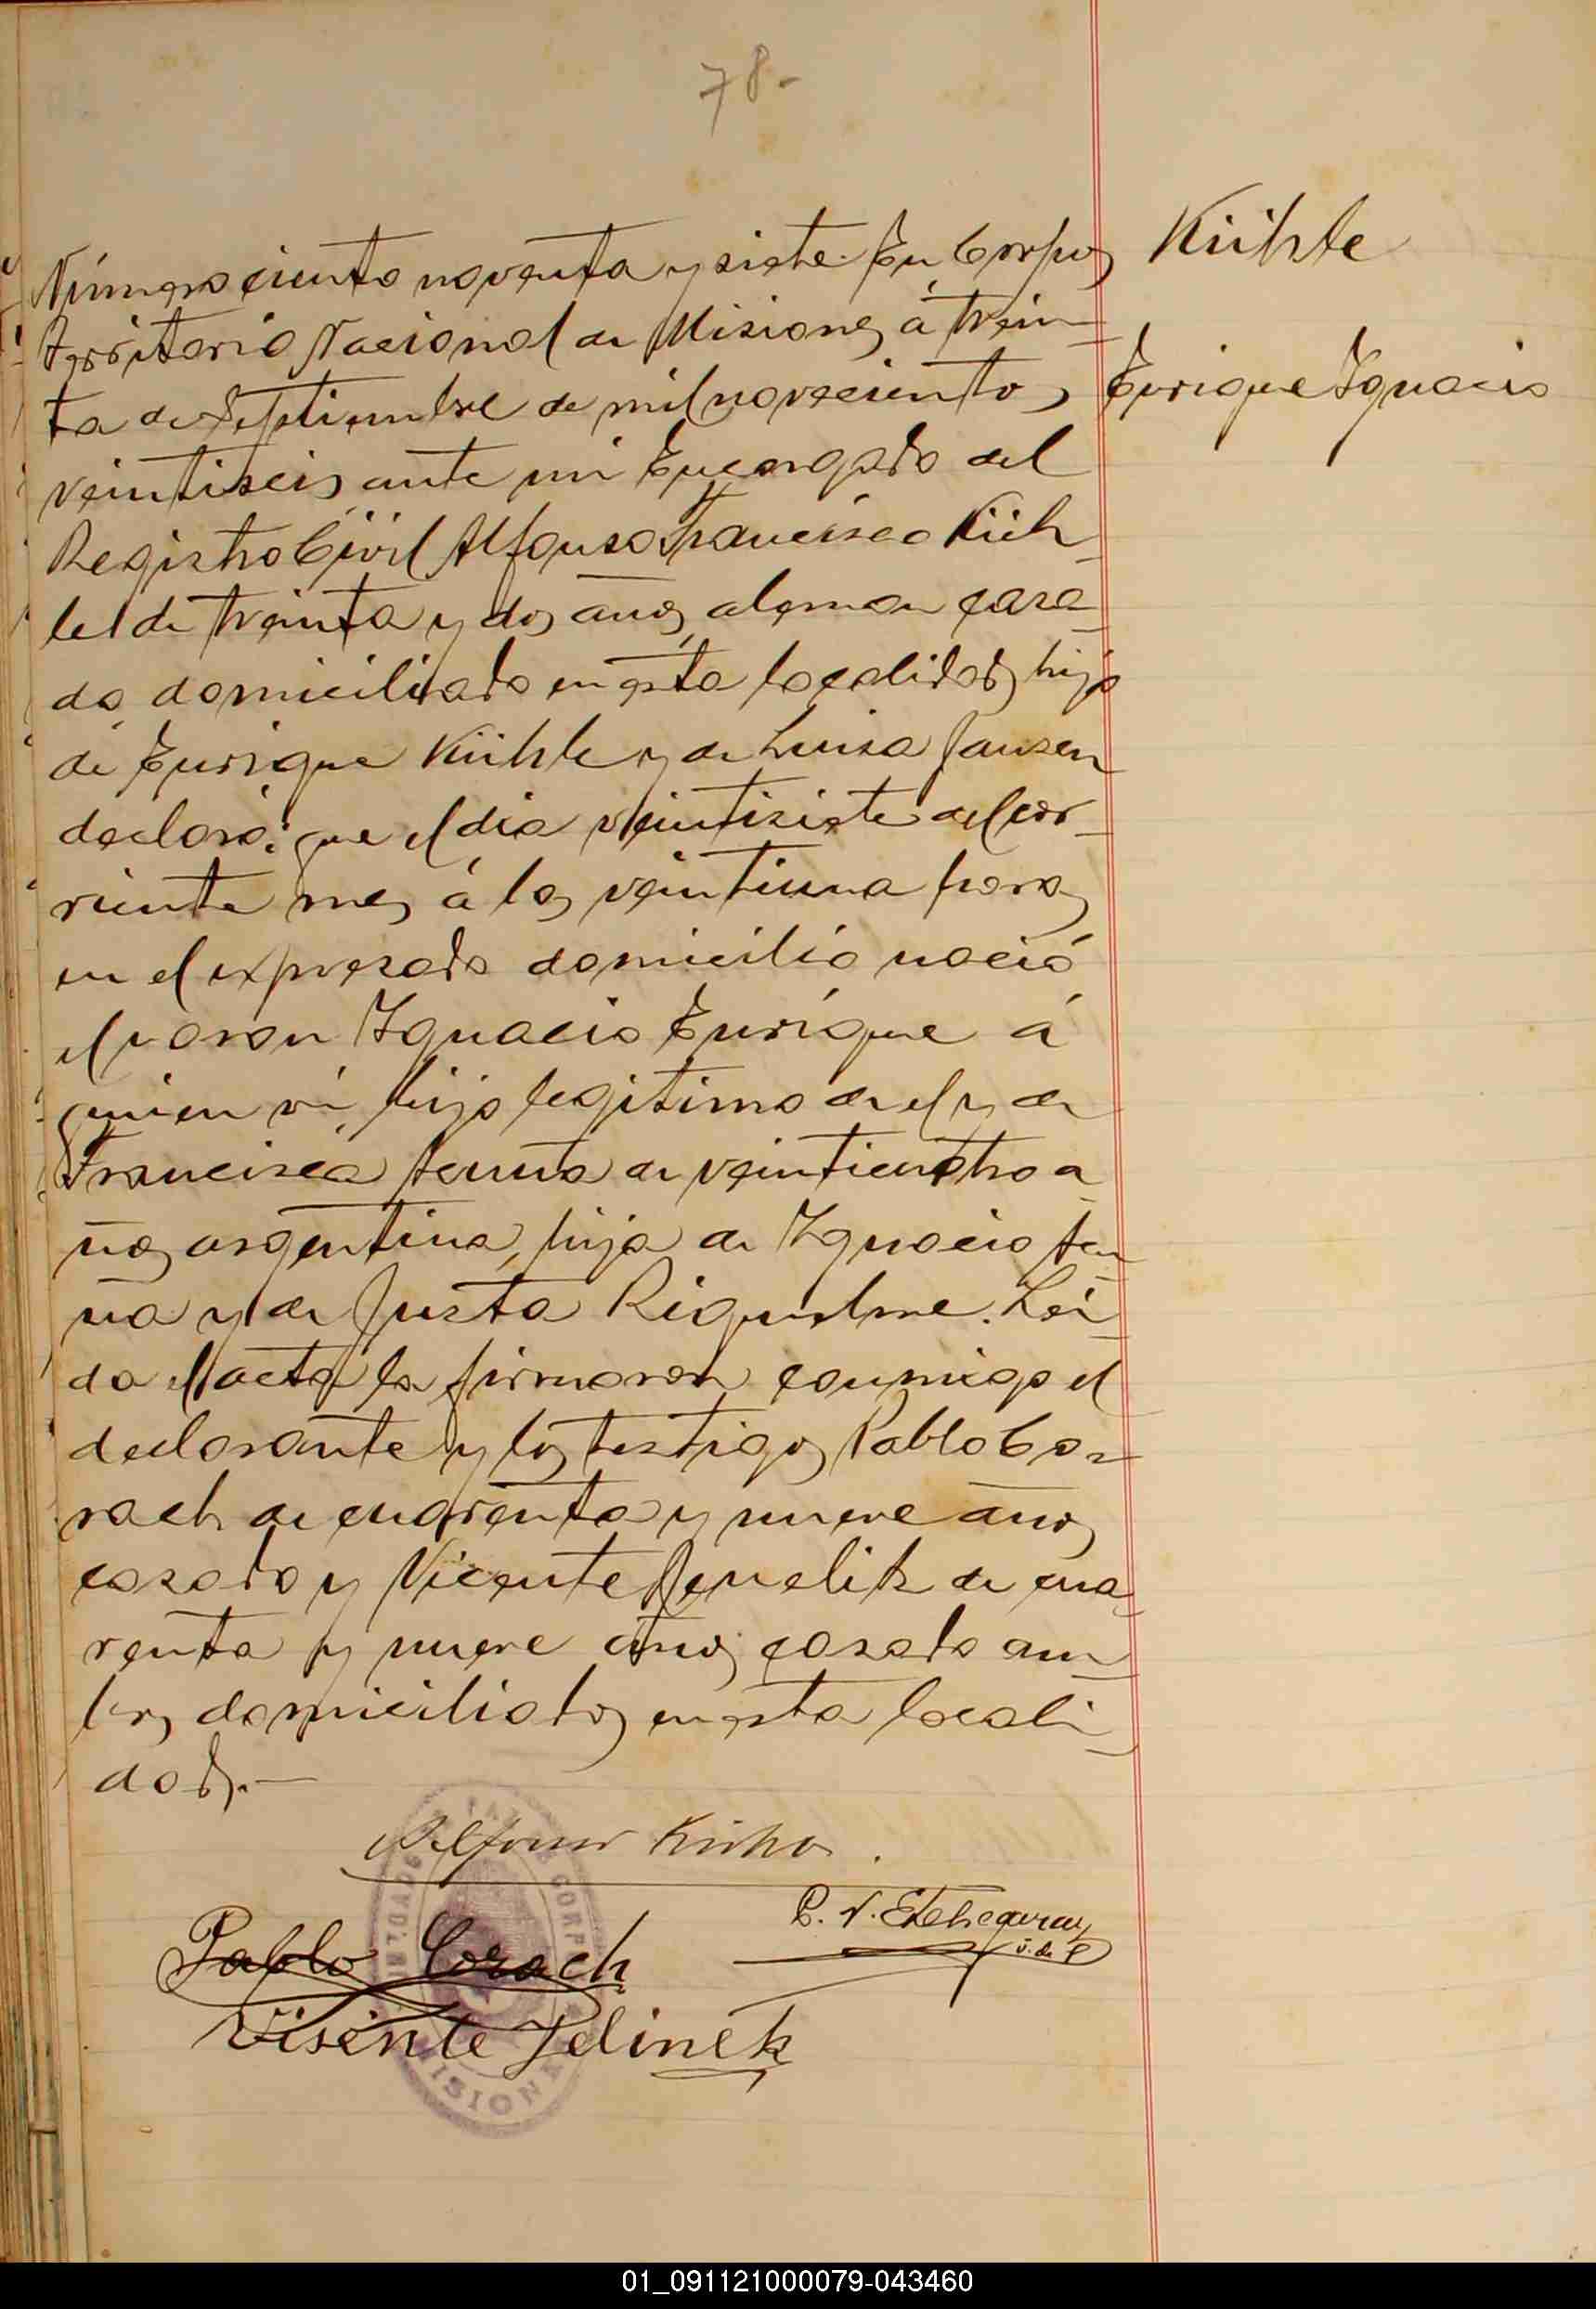 78-
Número ciento noventa y siete. En Corpus
Kühle
Territorio Nacional de Misiones á trein-
ta de Septiembre de mil novecientos
Enrique Ignacio
veintiseis, ante mi Encargado del
Registro Civil Alfonso Francisco Küh-
le, de treinta y dos años, aleman casa-
do, domiciliado en esta localidad, hijo
de Enrique Kühle y de Luisa Jansen
declaró: que el dia veintisiete del cor-
riente mes á las veintiuna horas
en el expresado domicilio nació
el varon Ignacio Enrique á
quien vi, hijo legitimo de el y de
Francisca de veinticuatro a-
ños, argentina, hija de Ignacio
y de Justa Riquelme. Lei-
da el acta la firmaron conmigo el
declarante y los testigos Pablo Co-
rach de cuarenta y nueve años
casado y Vicente de cua-
renta y nueve años, casado am-
bos domiciliados en esta locali-
dad.—
Alfonso
P. N. Etchegaray
Pablo Corach
Visente Jelinek
CORPUS
MISIONES
01_091121000079-043460